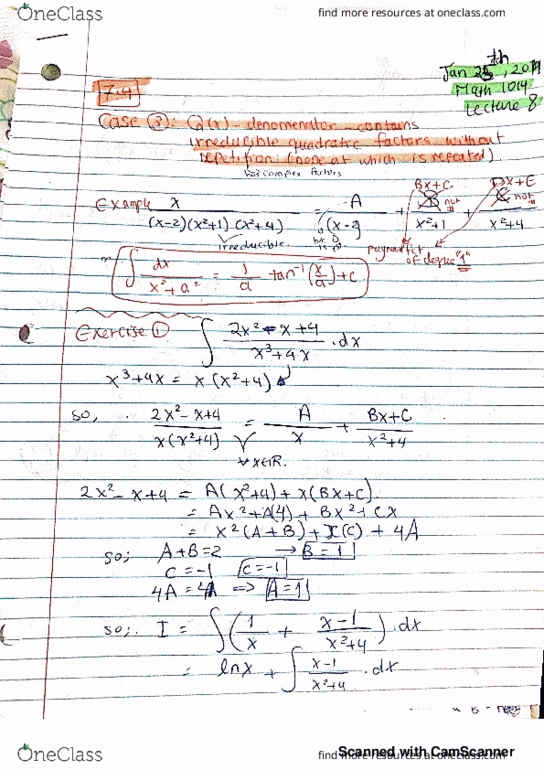 OneClass
find more resources at oneclass.com
Jan 25th, 2019
Math 1014
Lecture 8
7.4
Case ③: Q(x) - denomenator - contains
irreducible quadratic factors without
repetition (none at which is repeated)
has complex factors
Example x / (x-2)(x²+1)(x²+4) = A / (x-2) + Bx+C / x²+1 + Dx+E / x²+4
irreducible
not
not
polynomial of degree "1"
∫ dx / x²+a² = 1/a tan⁻¹(x/a)+c
Exercise ① ∫ 2x²-x+4 / x³+4x . dx
x³+4x = x(x²+4)
so, 2x²-x+4 / x(x²+4) = A / x + Bx+C / x²+4
∀ x∈R.
2x²-x+4 = A(x²+4) + x(Bx+C).
= Ax²+A(4) + Bx²+Cx
= x²(A+B) + x(C) + 4A
so; A+B=2 → B=1
C=-1 C=-1
4A=4 ⇒ A=1
so; I = ∫(1/x + x-1 / x²+4) . dx
= lnx + ∫ x-1 / x²+4 . dx
OneClass
find more resources at oneclass.com
Scanned with CamScanner